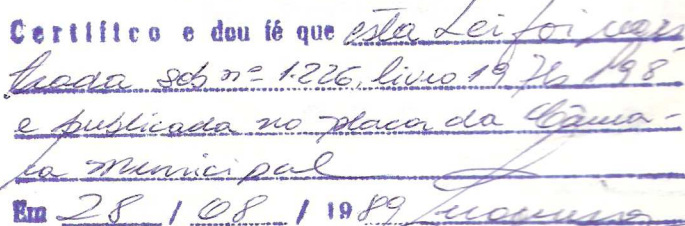 Certifico e dou fé que esta Lei foi regis
trada sob nº 1.226, livro 19 fls 198
e publicada no placar da Câma-
ra municipal
Em 28 / 08 / 1989